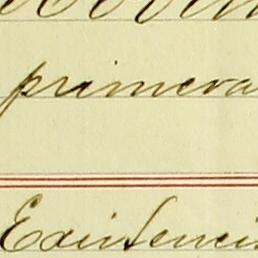 primera
Existenci